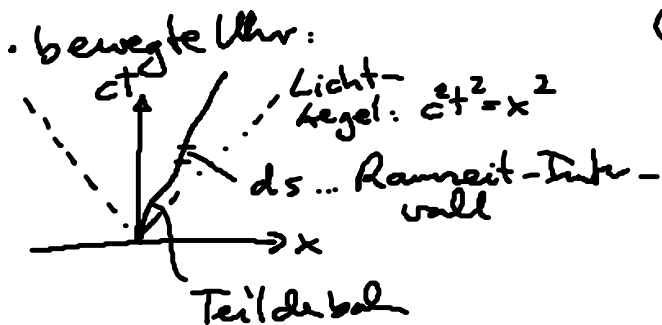 · bewegte Uhr:
ct
Licht-
kegel: c²t² = x²
ds ... Raumzeit-Inter-
vall
x
Teilchenbahn